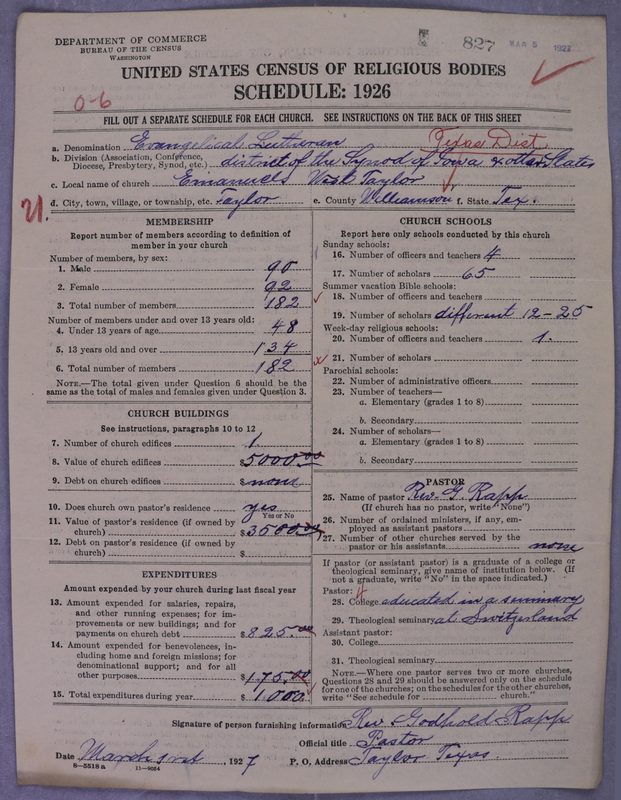 DEPARTMENT OF COMMERCE
BUREAU OF THE CENSUS
WASHINGTON
827 MAR 5 1927
UNITED STATES CENSUS OF RELIGIOUS BODIES
SCHEDULE: 1926
0-6
FILL OUT A SEPARATE SCHEDULE FOR EACH CHURCH. SEE INSTRUCTIONS ON THE BACK OF THIS SHEET
a. Denomination Evangelical Lutheran Texas Dist
b. Division (Association, Conference, Diocese, Presbytery, Synod, etc.) district of the Synod of Iowa & other States
c. Local name of church Emanuels West Taylor
U. d. City, town, village, or township, etc. Taylor e. County Williamson f. State Tex.
MEMBERSHIP
Report number of members according to definition of
member in your church
Number of members, by sex:
1. Male 90
2. Female 92
3. Total number of members 182
Number of members under and over 13 years old:
4. Under 13 years of age 48
5. 13 years old and over 134
6. Total number of members 182
NOTE.—The total given under Question 6 should be
same as the total of males and females given under Question 3.
CHURCH BUILDINGS
See instructions, paragraphs 10 to 12
7. Number of church edifices 1
8. Value of church edifices $5000.00
9. Debt on church edifices $none
10. Does church own pastor's residence yes
Yes or No
11. Value of pastor's residence (if owned by
church) $3500.00
12. Debt on pastor's residence (if owned by
church) $
EXPENDITURES
Amount expended by your church during last fiscal year
13. Amount expended for salaries, repairs,
and other running expenses; for im-
provements or new buildings; and for
payments on church debt $825.00
14. Amount expended for benevolences, in-
cluding home and foreign missions; for
denominational support; and for all
other purposes $175.00
15. Total expenditures during year $1000
CHURCH SCHOOLS
Report here only schools conducted by this church
Sunday schools:
16. Number of officers and teachers 4
17. Number of scholars 65
Summer vacation Bible schools:
18. Number of officers and teachers
19. Number of scholars different 12-25
Week-day religious schools:
20. Number of officers and teachers 1.
21. Number of scholars
Parochial schools:
22. Number of administrative officers
23. Number of teachers—
a. Elementary (grades 1 to 8)
b. Secondary
24. Number of scholars—
a. Elementary (grades 1 to 8)
b. Secondary
PASTOR
25. Name of pastor Rev. G. Rapp
(If church has no pastor, write "None")
26. Number of ordained ministers, if any, em-
ployed as assistant pastors
27. Number of other churches served by the
pastor or his assistants none
If pastor (or assistant pastor) is a graduate of a college or
theological seminary, give name of institution below. (If
not a graduate, write "No" in the space indicated.)
Pastor:
28. College educated in a seminary
29. Theological seminary at Switzerland
Assistant pastor:
30. College
31. Theological seminary
NOTE.—Where one pastor serves two or more churches,
Questions 28 and 29 should be answered only on the schedule
for one of the churches; on the schedules for the other churches,
write "See schedule for church."
Signature of person furnishing information Rev Godhold Rapp
Official title Pastor
Date March 1rst, 1927 P. O. Address Taylor Texas.
8-5518 a 11-9054